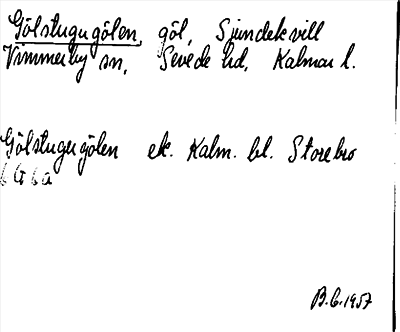 Gölstugugölen, göl, Sjundekvill
Vimmerby sn, Sevede hd, Kalmar l.
Gölstugugölen ek. Kalm. bl. Storebro
6 G 6 a
B.C. 1957